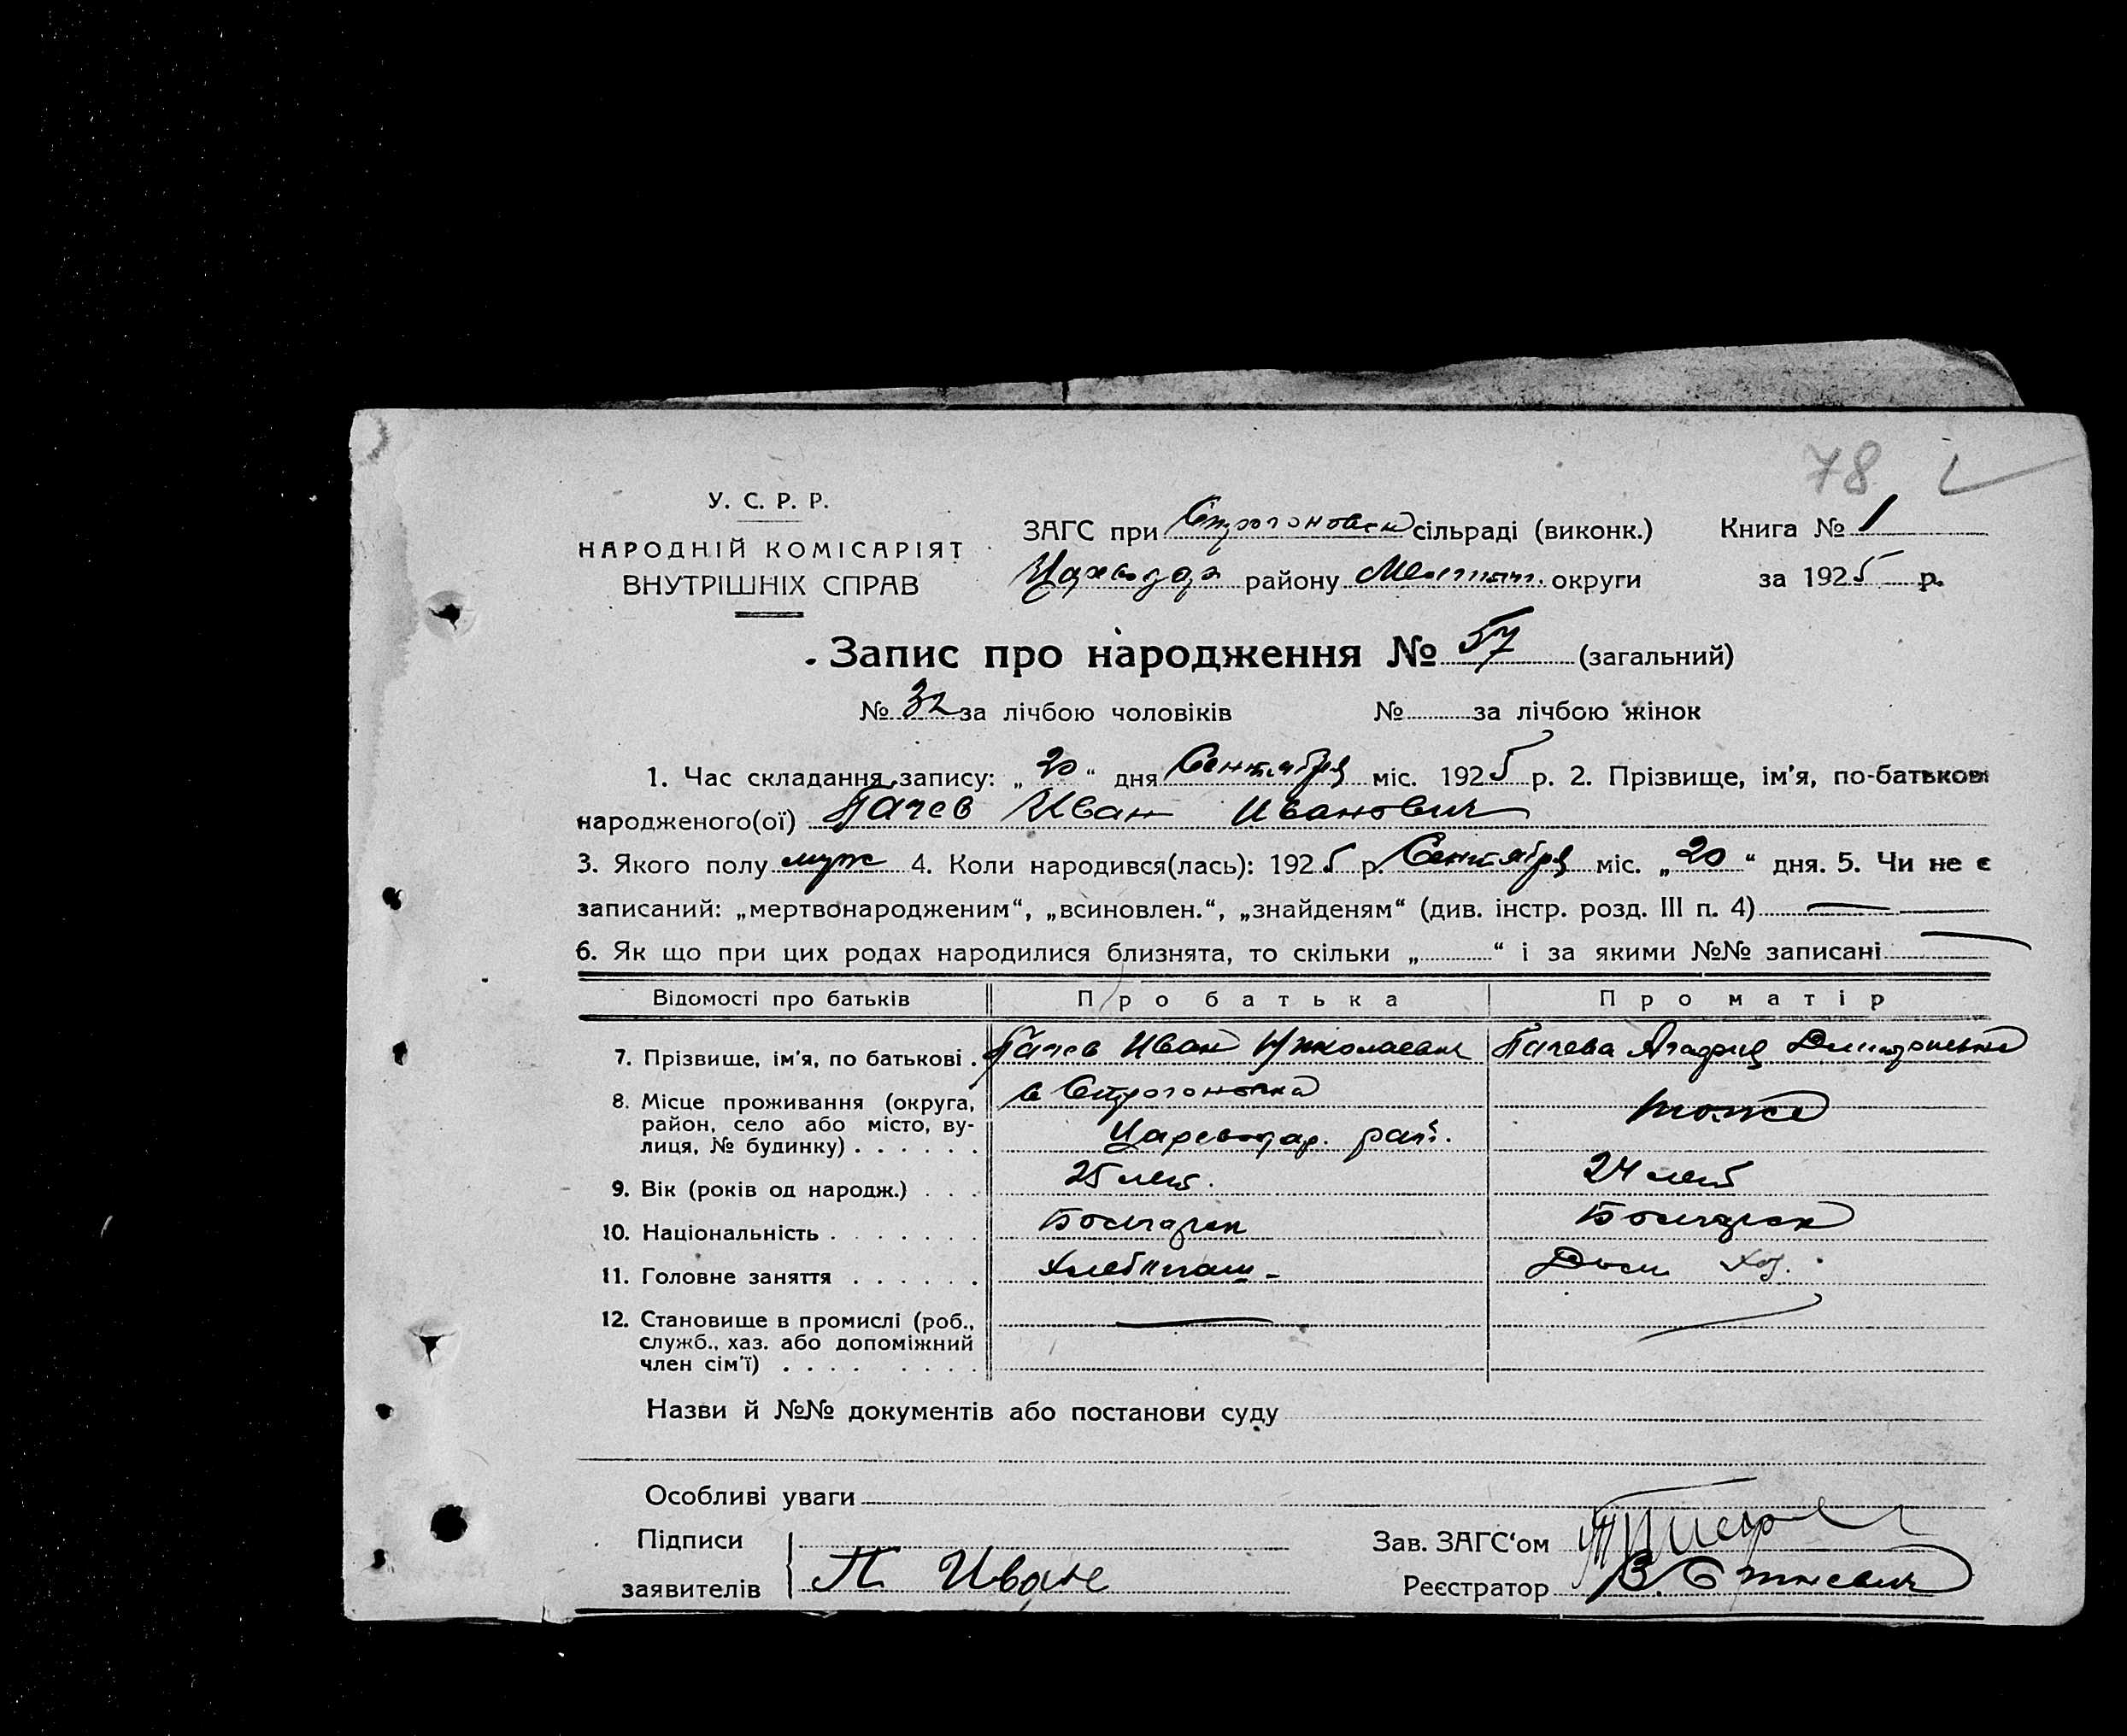 78
У. С. Р. Р.
НАРОДНІЙ КОМІСАРІЯТ
ВНУТРІШНІХ СПРАВ
ЗАГС при Строгоновск сільраді (виконк.) Книга № 1
району Мелитоп. округи за 1925 р.
Запис про народження № 57 (загальний)
№ 32 за лічбою чоловіків № за лічбою жінок
1. Час складання запису: „20“ дня Сентября міс. 1925 р. 2. Прізвище, ім'я, по-батькові
народженого(ої) Пачев Иван Иванович
3. Якого полу муж 4. Коли народився(лась): 1925 р. Сентября міс. „20“ дня. 5. Чи не є
записаний: „мертвонародженим“, „всиновлен.“, „знайденям“ (див. інстр. розд. III п. 4)
6. Як що при цих родах народилися близнята, то скільки „ “ і за якими №№ записані
Відомості про батьків Про батька Про матір
7. Прізвище, ім'я, по батькові . Пачев Иван Николаевич Пачева
8. Місце проживання (округа, район, село або місто, вулиця, № будинку) . . . . . . с Строгоновка тоже
Цареводар. рай.
9. Вік (років од народж.) . . . 25 лет. 24 лет
10. Національність . . . . . . . Болгарск Болгарск
11. Головне заняття . . . . . . Хлебопаш- Дом Хоз.
12. Становище в промислі (роб.,
служб., хаз. або допоміжний
член сім'ї) . . . . . . . .
Назви й №№ документів або постанови суду
Особливі уваги
Підписи
заявителів П Иване
Зав. ЗАГС'ом
Реєстратор В.